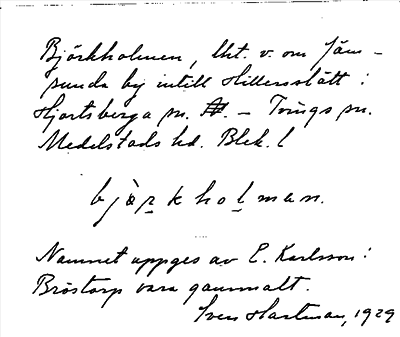 Björkholmen, lht. v. om Jäm-
sunda by intill Hillersslätt i
Hjortsberga sn. – Tvings sn.
Medelstads hd. Blek. l
bjàrkholman.
Namnet uppges av C. Karlsson i
Bröstorp vara gammalt.
Sven Hartman, 1929